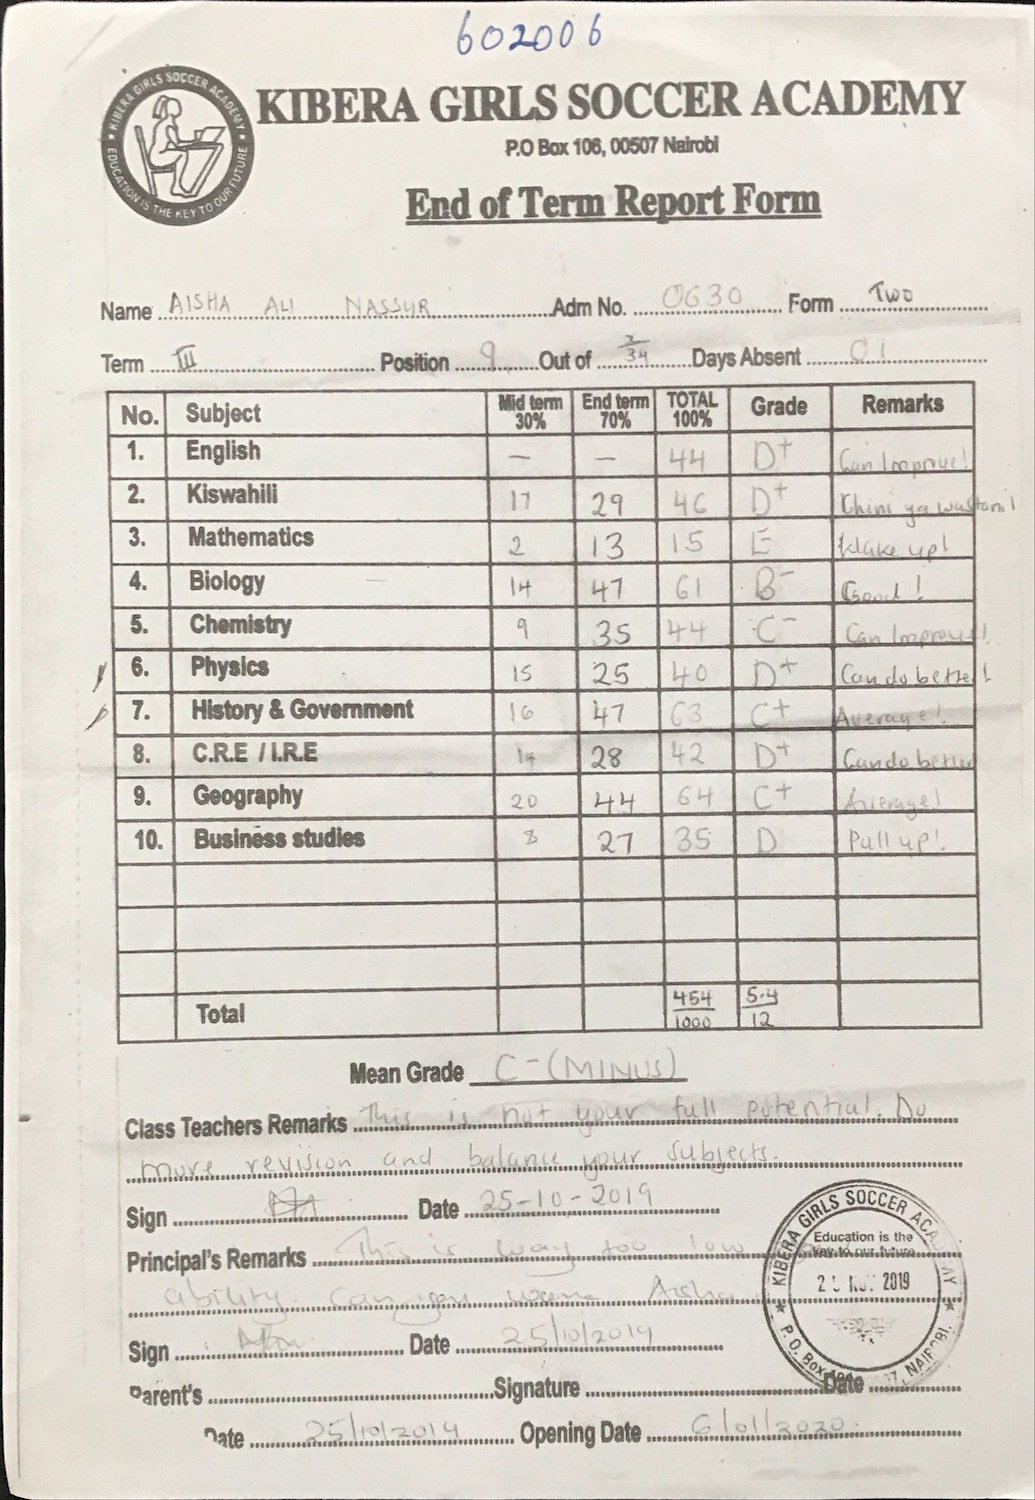 602006
KIBERA GIRLS SOCCER ACADEMY
EDUCATION IS THE KEY TO OUR FUTURE
KIBERA GIRLS SOCCER ACADEMY
P.O Box 106, 00507 Nairobi
End of Term Report Form
Name AISHA ALI NASSUR Adm No. 0630 Form Two
Term III Position 9 Out of 34 Days Absent 01
No. Subject Mid term 30% End term 70% TOTAL 100% Grade Remarks
1. English — — 44 D+ Can Improve!
2. Kiswahili 17 29 46 D+ Chini ya wastani
3. Mathematics 2 13 15 E Wake up!
4. Biology 14 47 61 B- Good!
5. Chemistry 9 35 44 C- Can Improve!
6. Physics 15 25 40 D+ Can do better!
7. History & Government 16 47 63 C+ Average!
8. C.R.E / I.R.E 14 28 42 D+ Can do better
9. Geography 20 44 64 C+ Average!
10. Business studies 8 27 35 D Pull up!
Total 454/1000 5.4/12
Mean Grade C- (MINUS)
Class Teachers Remarks This is not your full potential. Do
more revision and balance your subjects.
Sign Date 25-10-2019
Principal's Remarks This is way too low
ability. Can you Aisha
Sign Date 25/10/2019
Parent's Signature Date
Date 25/10/2019 Opening Date 6/01/2020
KIBERA GIRLS SOCCER ACADEMY
Education is the
key to our future
NOV 2019
P.O. Box NAIROBI.